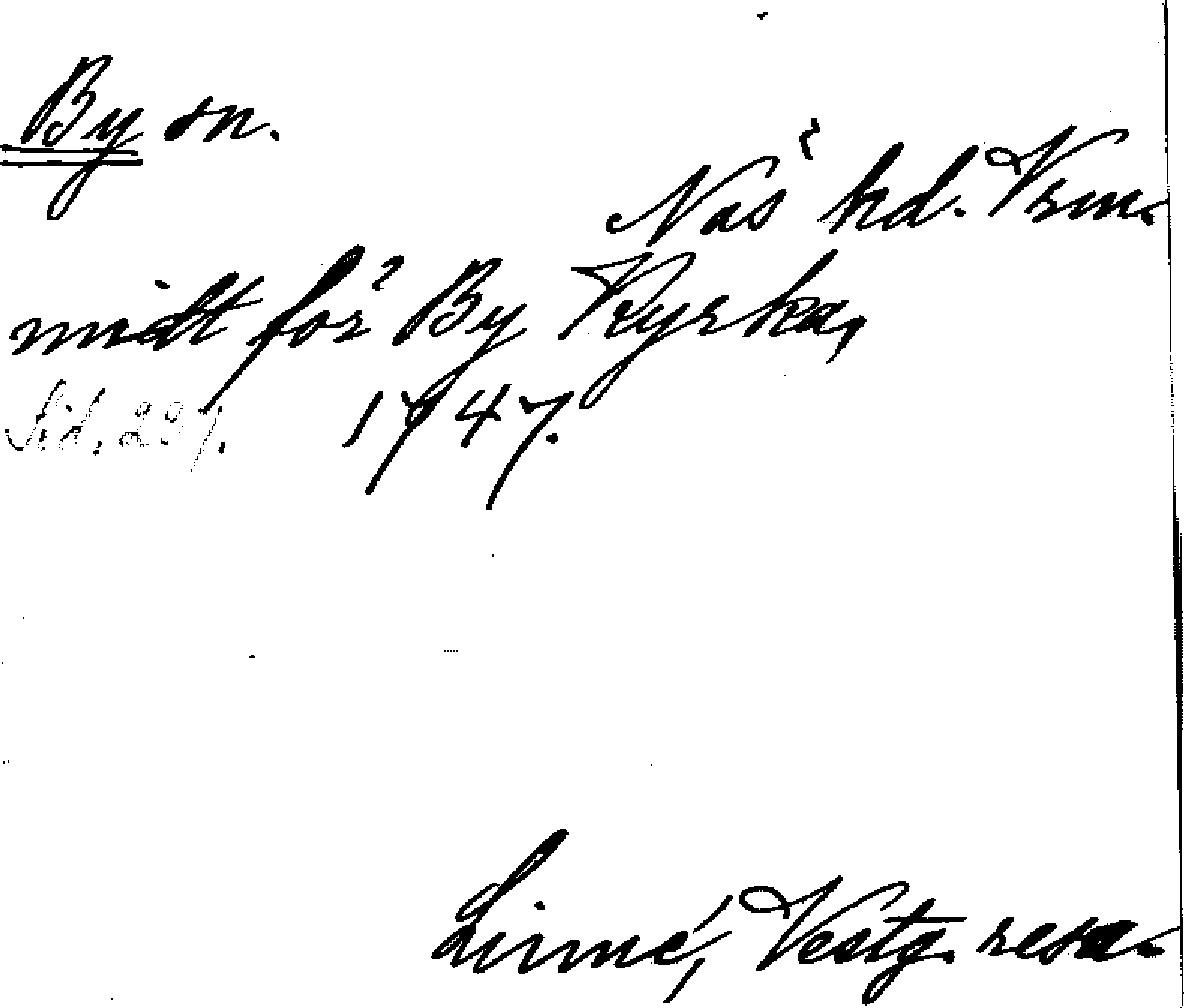 By sn.
Näs hd. Vrm.
midt för By Kyrka,
Sid. 237. 1747.
Linné, Vestg. resa.